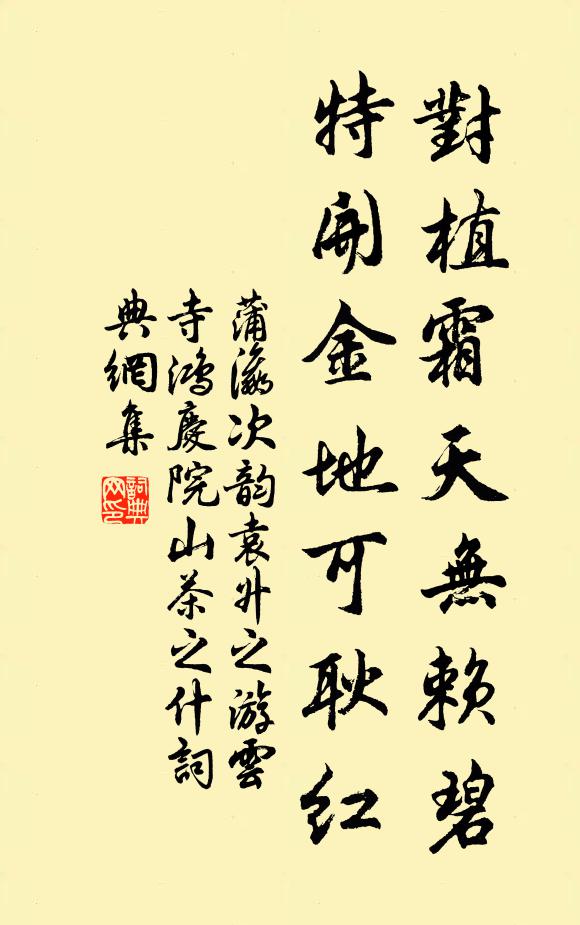 對植霜天無賴碧
特開金地可耿紅
蒲瀛次韵袁升之游雲
寺鴻慶院山茶之什詞
典網集
詞典
网印